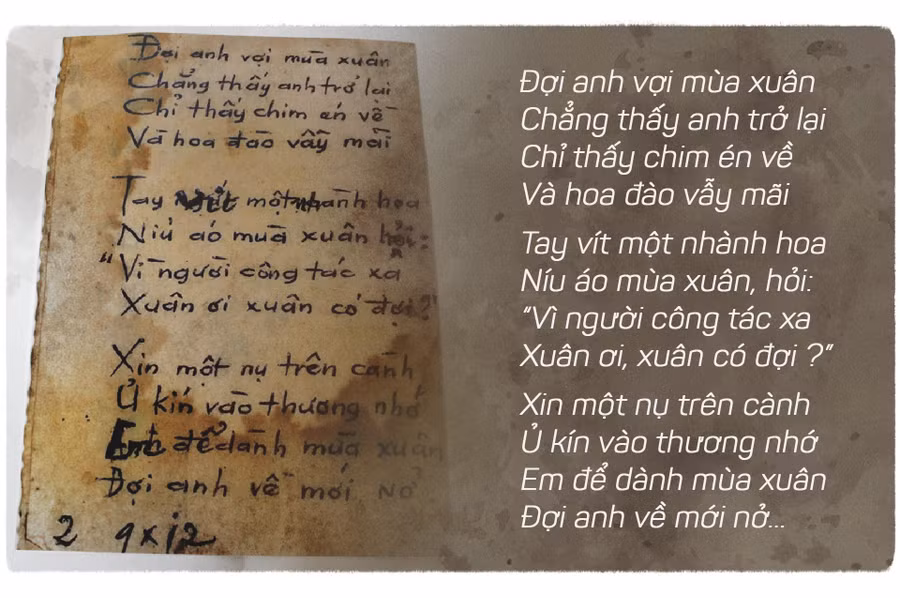 Đợi anh vợi mùa xuân
Chẳng thấy anh trở lại
Chỉ thấy chim én về
Và hoa đào vẫy mãi
Tay vít một nhành hoa
Níu áo mùa xuân hỏi:
"Vì người công tác xa
Xuân ơi xuân có đợi?"
Xin một nụ trên cành
Ủ kín vào thương nhớ
Em để dành mùa xuân
Đợi anh về mới nở
2 9x12
Đợi anh vợi mùa xuân
Chẳng thấy anh trở lại
Chỉ thấy chim én về
Và hoa đào vẫy mãi
Tay vít một nhành hoa
Níu áo mùa xuân, hỏi:
“Vì người công tác xa
Xuân ơi, xuân có đợi ?”
Xin một nụ trên cành
Ủ kín vào thương nhớ
Em để dành mùa xuân
Đợi anh về mới nở...